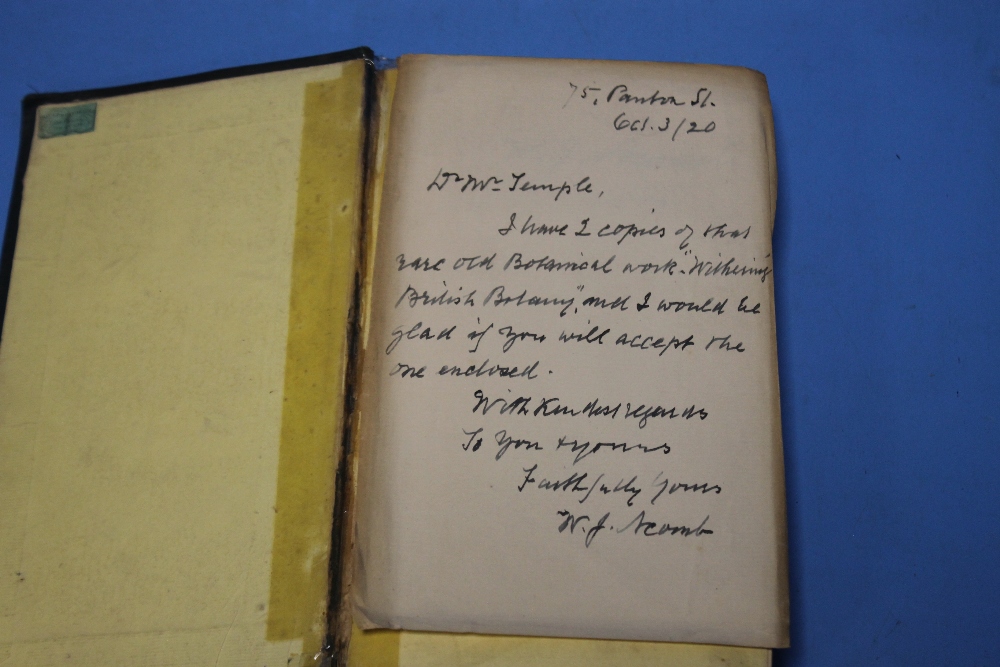 75, Panton St.
Oct. 3/20
Dr Mr Temple,
I have 2 copies of that
rare old Botanical work "Witherings
British Botany", and I would be
glad if you will accept the
one enclosed.
With Kindest regards
To you & yours
Faithfully Yours
W. J. Acomb